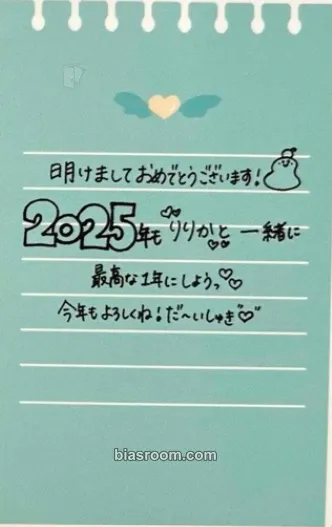 明けましておめでとうございます!
2025年も りりかと 一緒に
最高な1年にしようっ♡♡
今年もよろしくね!だ〜いしゅき♡
biasroom.com